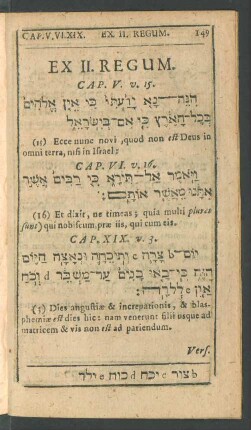 CAP.V.VI.XIX. EX II. REGUM. 149
EX II. REGUM.
CAP. V. v. 15.
הִנֵּה־נָא יָדַעְתִּי כִּי אֵין אֱלֹהִים
בְּכָל־הָאָרֶץ כִּי אִם־בְּיִשְׂרָאֵל
(15) Ecce nunc novi, quod non est Deus in
omni terra, nisi in Israel:
CAP. VI. v. 16.
וַיֹּאמֶר אַל־תִּירָא כִּי רַבִּים אֲשֶׁר
אִתָּנוּ מֵאֲשֶׁר אוֹתָם:
(16) Et dixit, ne timeas; quia multi plures
sunt) qui nobiscum præ iis, qui cum eis.
CAP. XIX. v. 3.
יוֹם־b צָרָה c וְתוֹכֵחָה וּנְאָצָה הַיּוֹם
הַזֶּה כִּי־בָאוּ בָנִים עַד־מַשְׁבֵּר d וְכֹחַ
אַיִן e לְלֵדָה:
(3) Dies angustiæ & increpationis, & blas-
phemiæ est dies hic: nam venerunt filii usque ad
matricem & vis non est ad pariendum.
Vers.
b צור c יכח d כוח e ילד